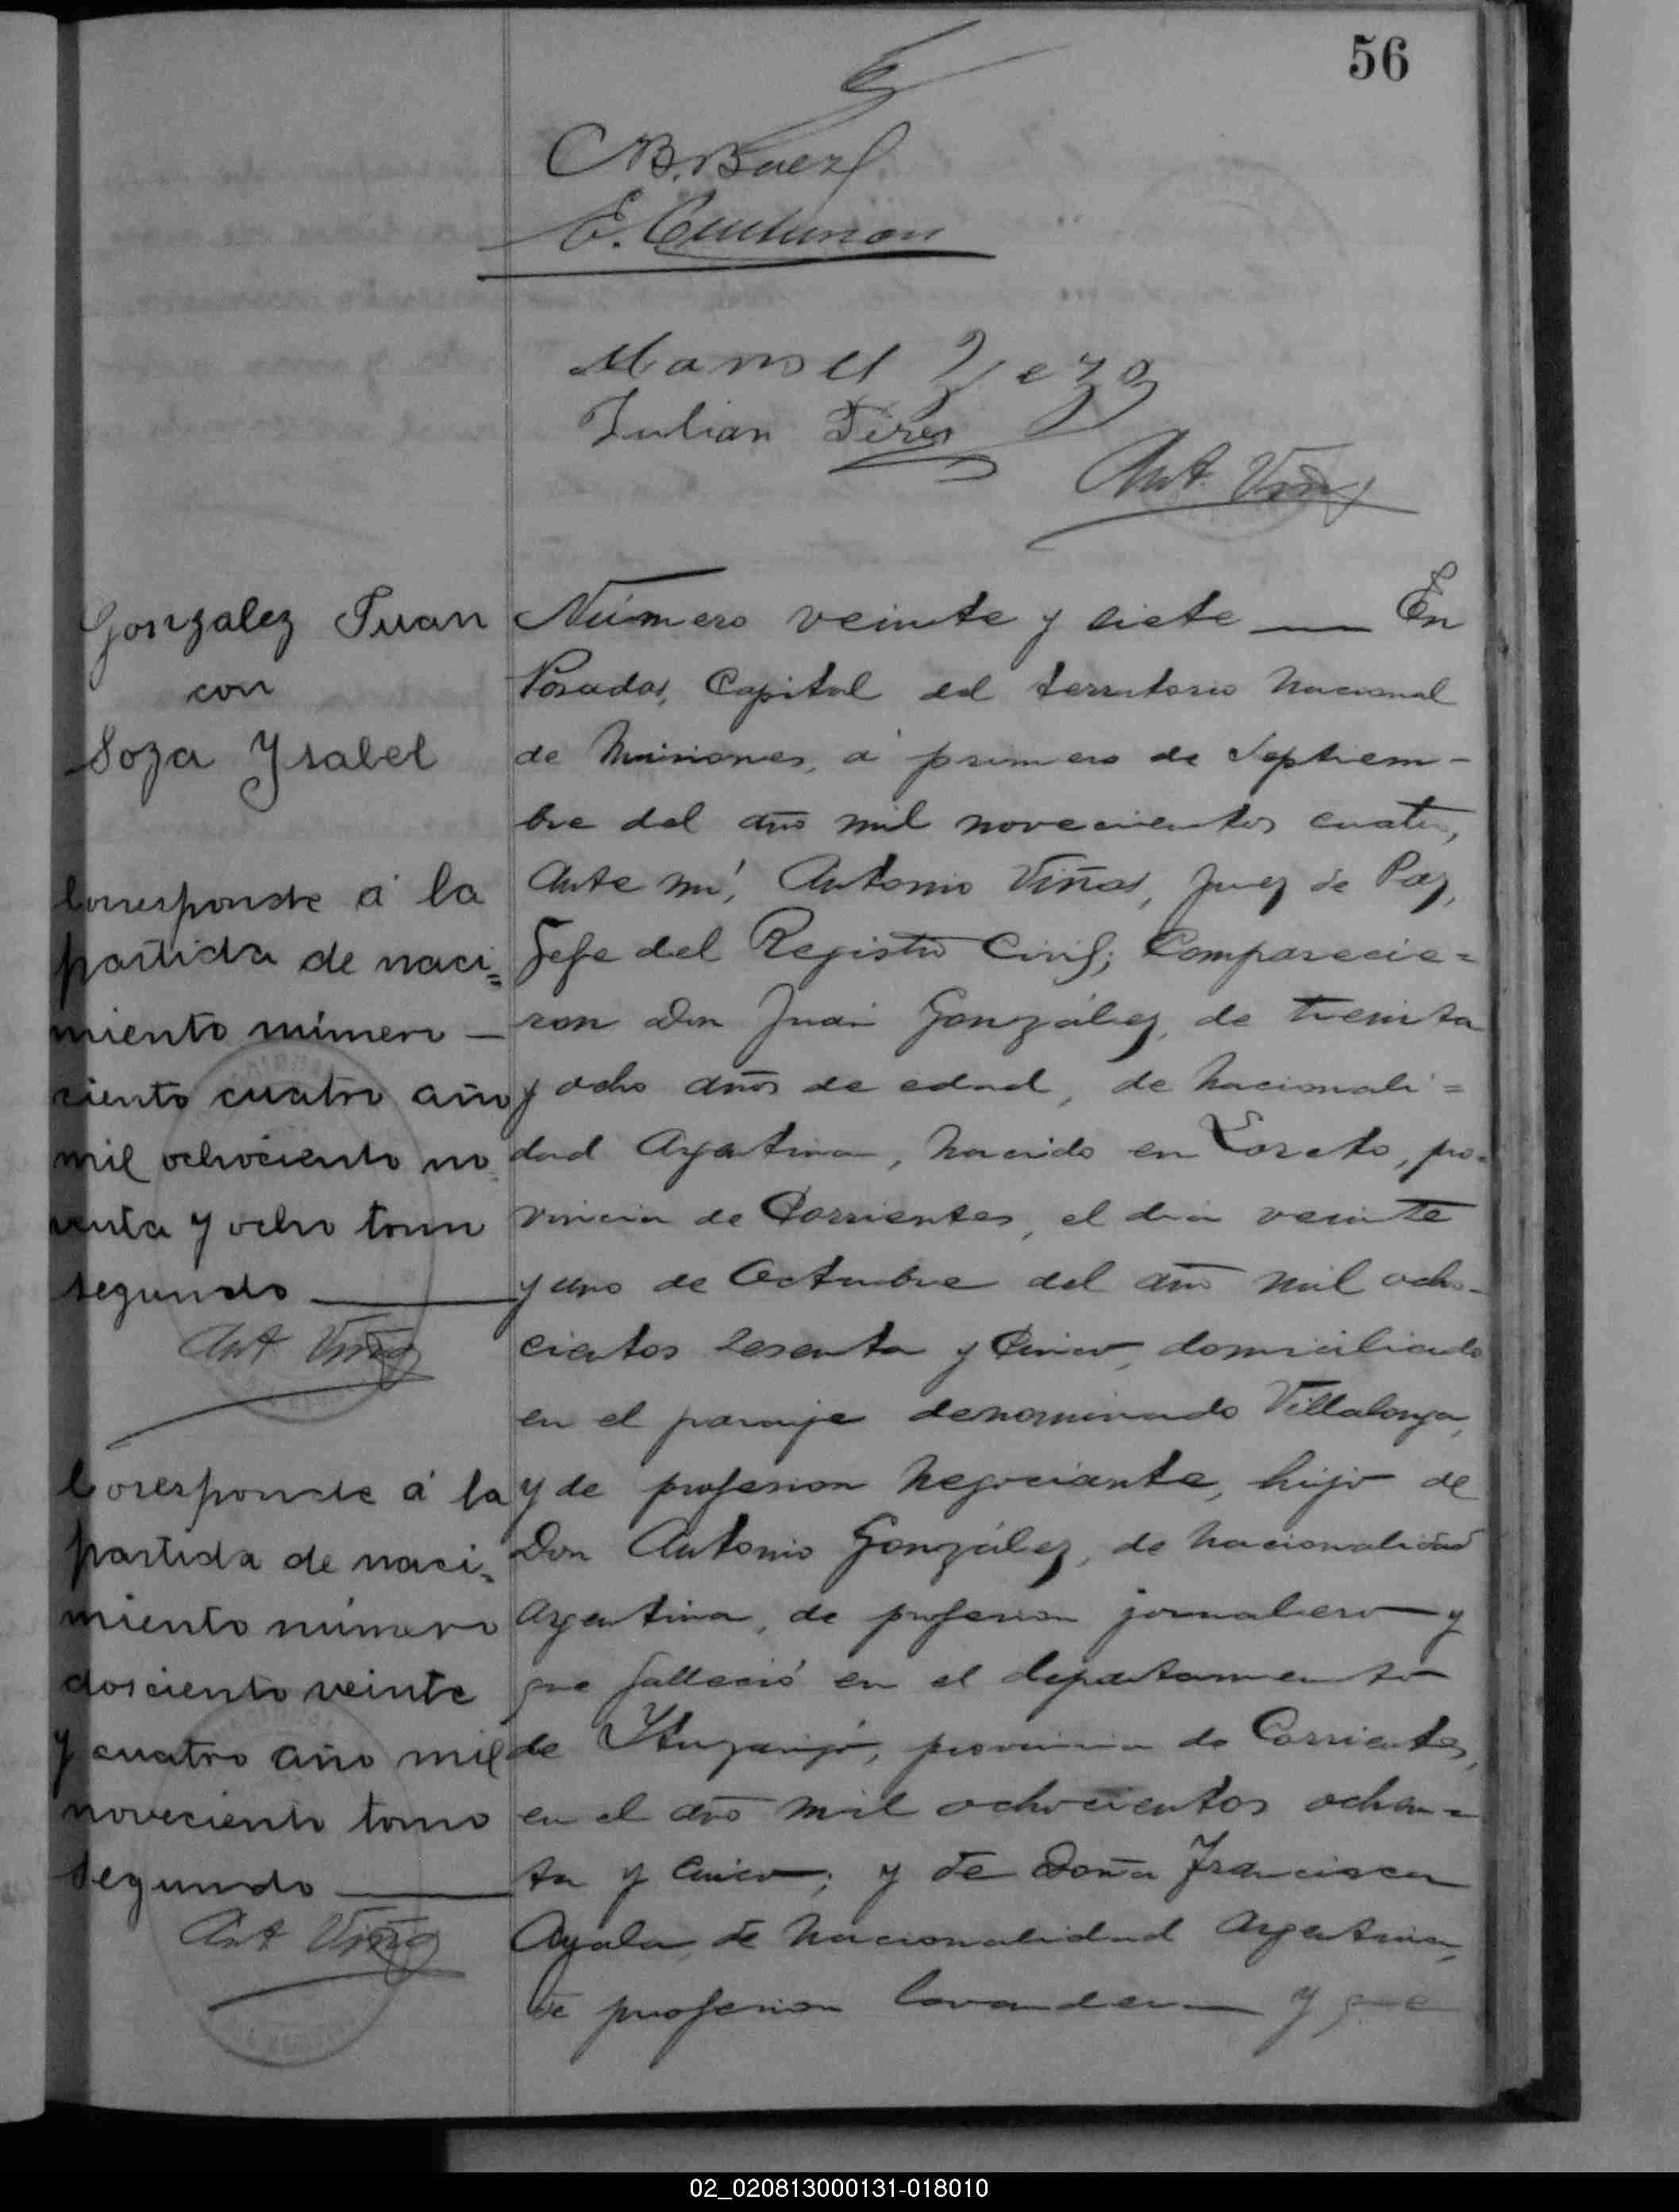 56
B. Baez
E. Centurion
Manuel
Julian Perez
Ant. Viñas
Gonzalez Juan
con
Soza Ysabel
Corresponde á la
partida de naci=
miento número —
ciento cuatro año
mil ochociento no
venta y ocho tomo
segundo —
Ant Viñas
Coresponde á la
partida de naci=
miento número
dosciento veinte
y cuatro año mil
noveciento tomo
segundo —
Ant Viñas
Número veinte y siete — En
Posadas, Capital del territorio Nacional
de Misiones, á primero de Septiem-
bre del año mil novecientos cuatro,
Ante mí, Antonio Viñas, Juez de Paz,
Gefe del Registro Civil; Comparecie=
ron Don Juan González, de treinta
y ocho años de edad, de nacionali=
dad Argentina, nacido en Loreto, pro-
vincia de Corrientes, el dia veinte
y uno de Octubre del año mil ocho-
cientos sesenta y cinco, domiciliado
en el paraje denominado Villalonga,
y de profesion negociante, hijo de
Don Antonio González, de nacionalidad
Argentina, de profesion jornalero y
que falleció en el departamento
de Ytuzaingó, provincia de Corrientes,
en el año mil ochocientos ochen=
ta y cinco; y de Doña Francisca
Ayala, de nacionalidad Argentina,
de profesion lavandera y que
02_020813000131-018010